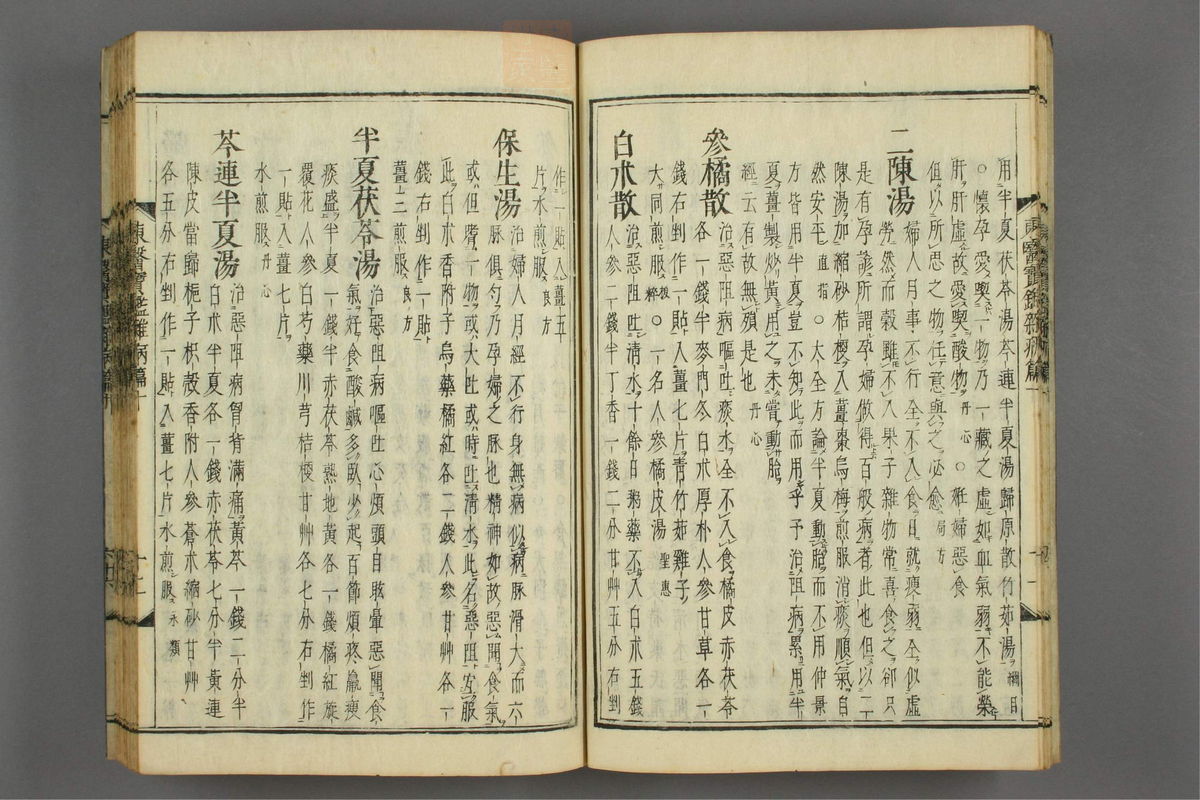 用半夏茯苓湯芩連半夏湯歸原散竹茹湯綱目
○懷孕愛喫一物乃一藏之虛如血氣弱不能榮
肝肝虛故愛喫酸物丹心○姙婦惡食
但以所思之物任意與之必愈局方
二陳湯婦人月事不行全不入食日就瘦弱全似虛
勞然而穀雖不入果子雜物常喜食之卻只
是有孕諺所謂孕婦做得百般病者此也但以二
陳湯加縮砂桔梗入薑棗烏梅煎服消痰順氣自
然安平直指○大全方論半夏動胎而不用仲景
方皆用半夏豈不知此而用乎予治阻病累用半
夏薑製炒黃用之未嘗動胎
經云有故無殞是也丹心
參橘散治惡阻病嘔吐痰水全不入食橘皮赤茯苓
各一錢半麥門冬白朮厚朴人參甘草各一
錢右剉作一貼入薑七片靑竹茹雞子
大同煎服○一名人參橘皮湯聖惠
白朮散治惡阻吐淸水十餘日粥藥不入白朮五錢
人參二錢半丁香一錢二分甘艸五分右剉
作一貼入薑五
片水煎服良方
保生湯治婦人月經不行身無病似病脉滑大而六
脉俱勻乃孕婦之脉也精神如故惡聞食氣
或但嗜一物或大吐或時吐淸水此名惡阻宜服
此白朮香附子烏藥橘紅各二錢人參甘艸各一
錢右剉作一貼
薑三煎服良方
半夏茯苓湯治惡阻病嘔吐心煩頭目眩暈惡聞食
氣好食酸鹹多臥少起百節煩疼羸瘦
痰盛半夏一錢半赤茯苓熟地黃各一錢橘紅旋
覆花人參白芍藥川芎桔梗甘艸各七分右剉作
一貼入薑七片
水煎服丹心
芩連半夏湯治惡阻病胷背滿痛黃芩一錢二分半
白朮半夏各一錢赤茯苓七分半黃連
陳皮當歸梔子枳殼香附人參蒼朮縮砂甘艸
各五分右剉作一貼入薑七片水煎服永類
東醫寶鑑雜病篇